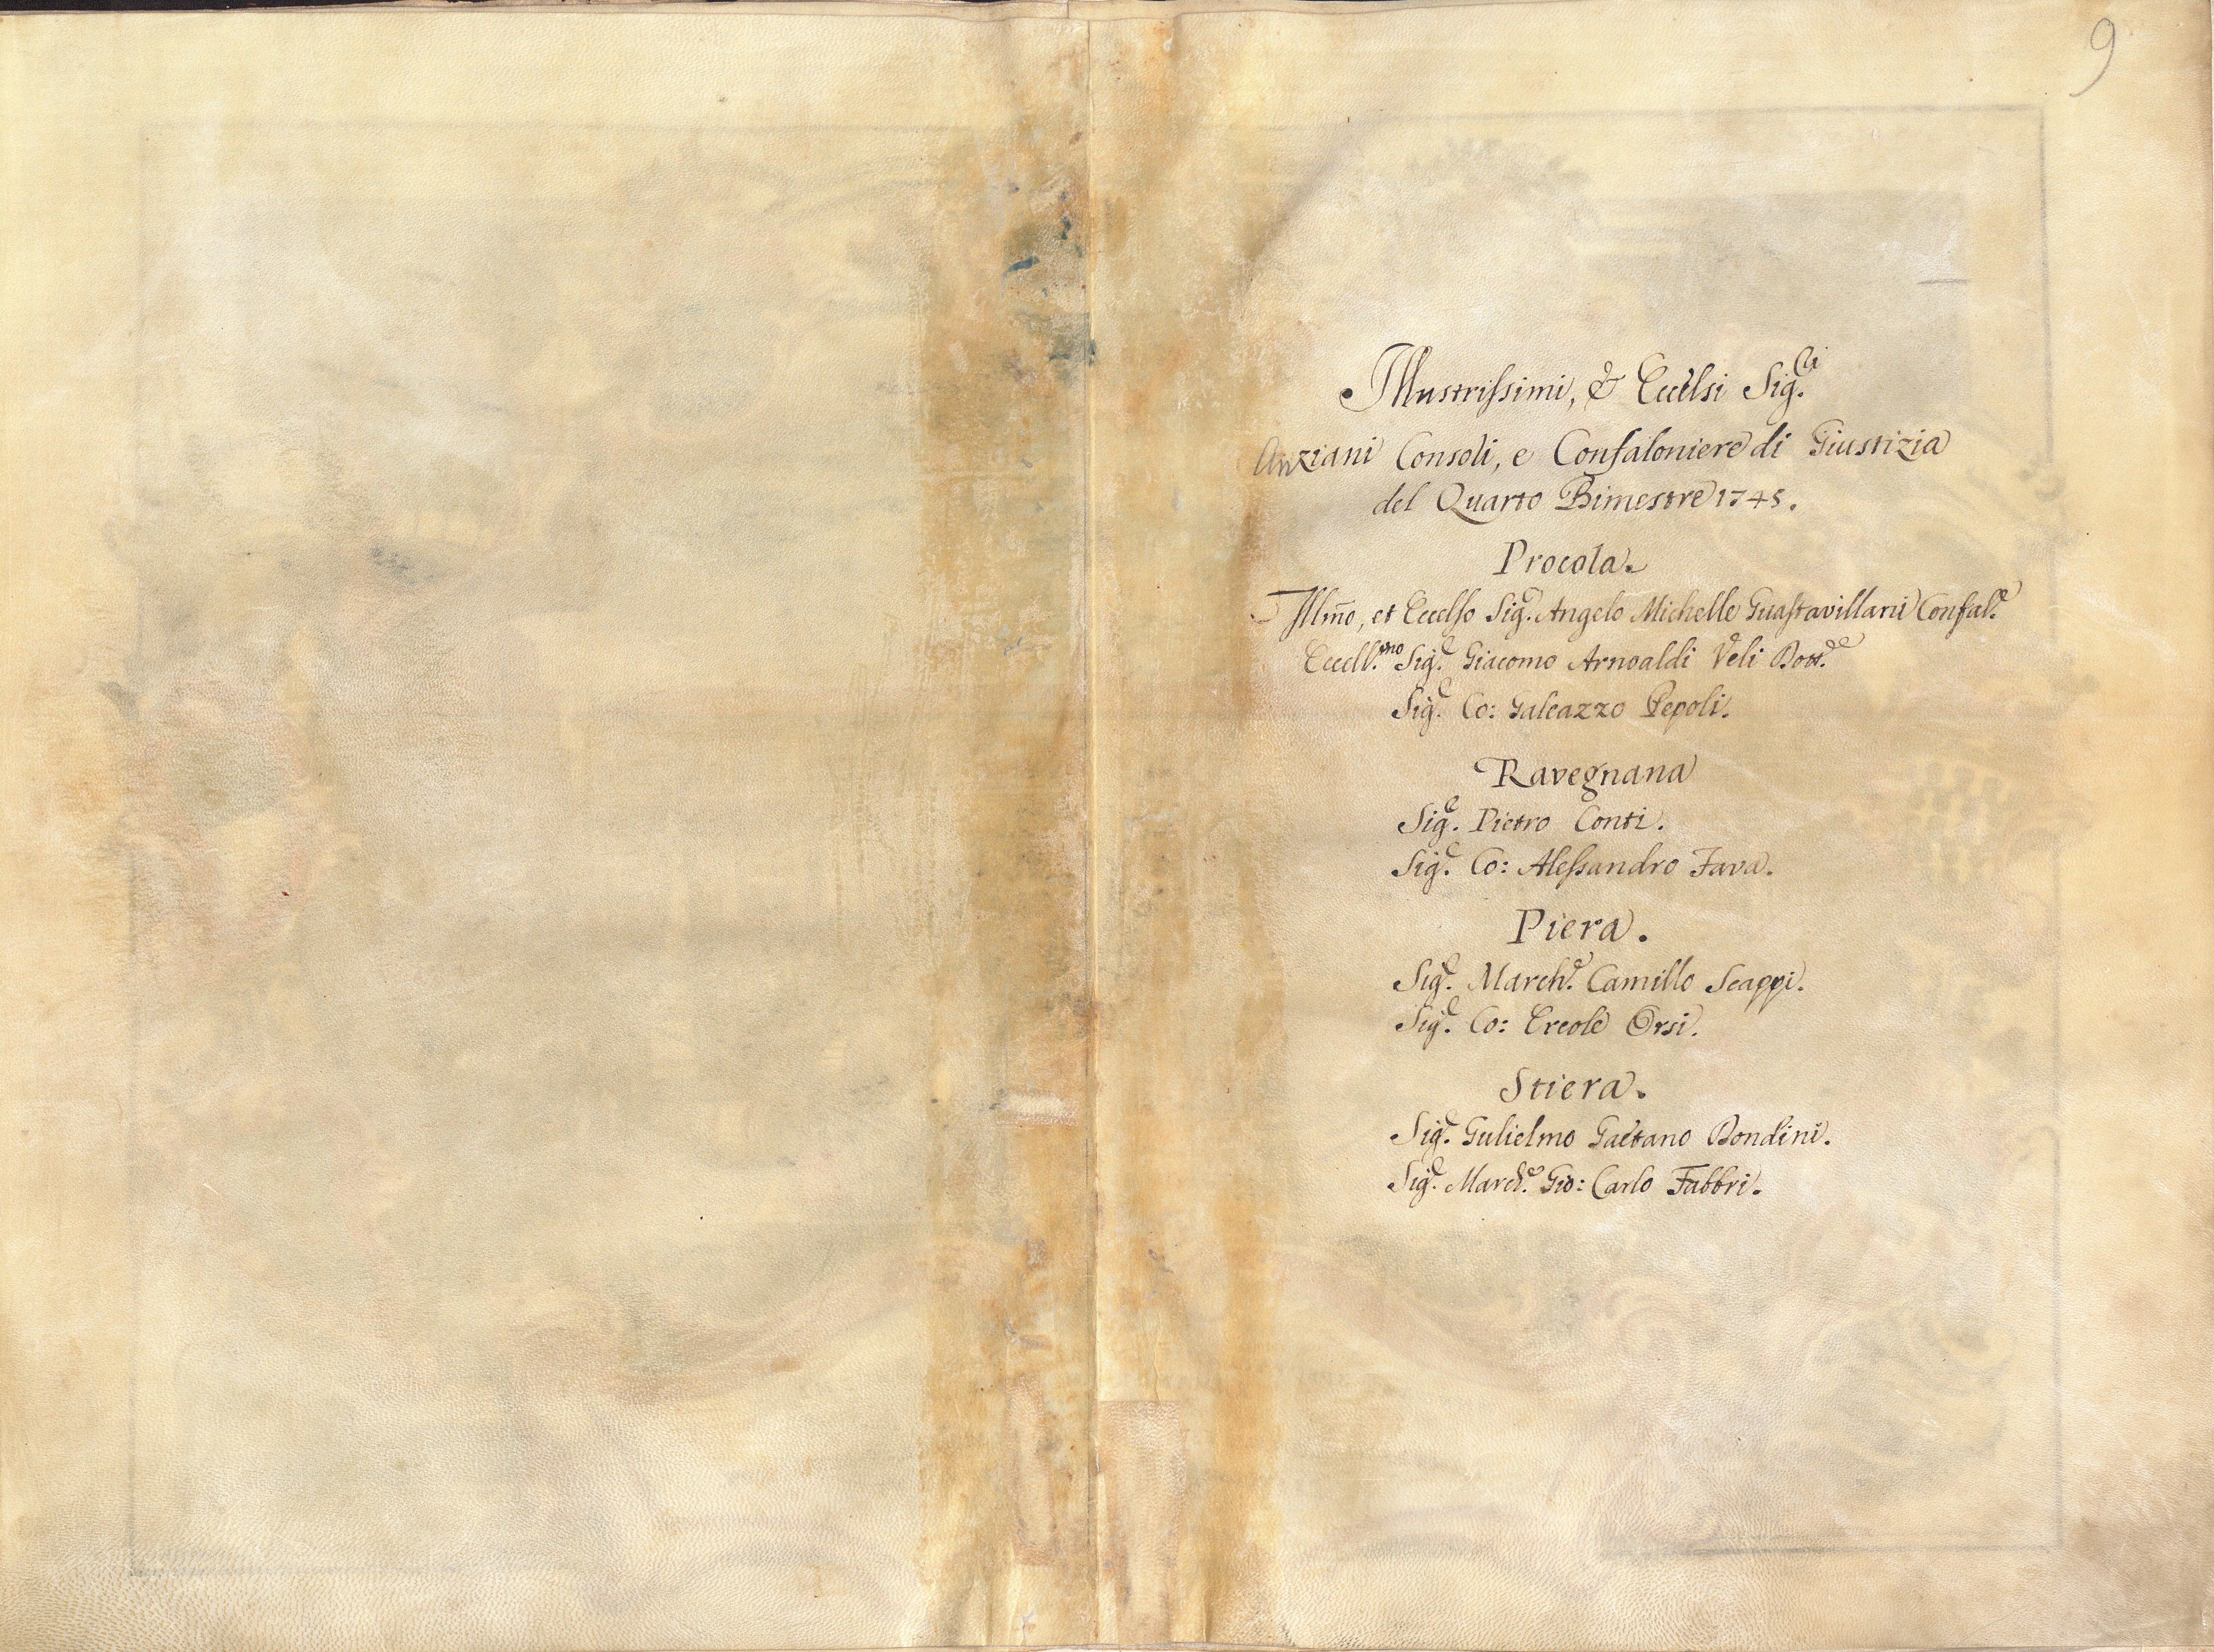 9
Illustrissimi, & Eccelsi Sig.ri
Anziani Consoli, e Confaloniere di Giustizia
del Quarto Bimestre 1745.
Procola.
Illm̃o, et Eccelso Sig.e Angelo Michelle Guastavillani Confal.e
Eccell.mo Sig.e Giacomo Arnoaldi Veli Dott.e
Sig.e Co: Galeazzo Pepoli.
Ravegnana
Sig.e Pietro Conti.
Sig.e Co: Alessandro Fava.
Piera.
Sig.e March.e Camillo Scappi.
Sig.e Co: Ercole Orsi.
Stiera.
Sig.e Gulielmo Gaetano Bondini.
Sig.e March.e Gio: Carlo Fabbri.